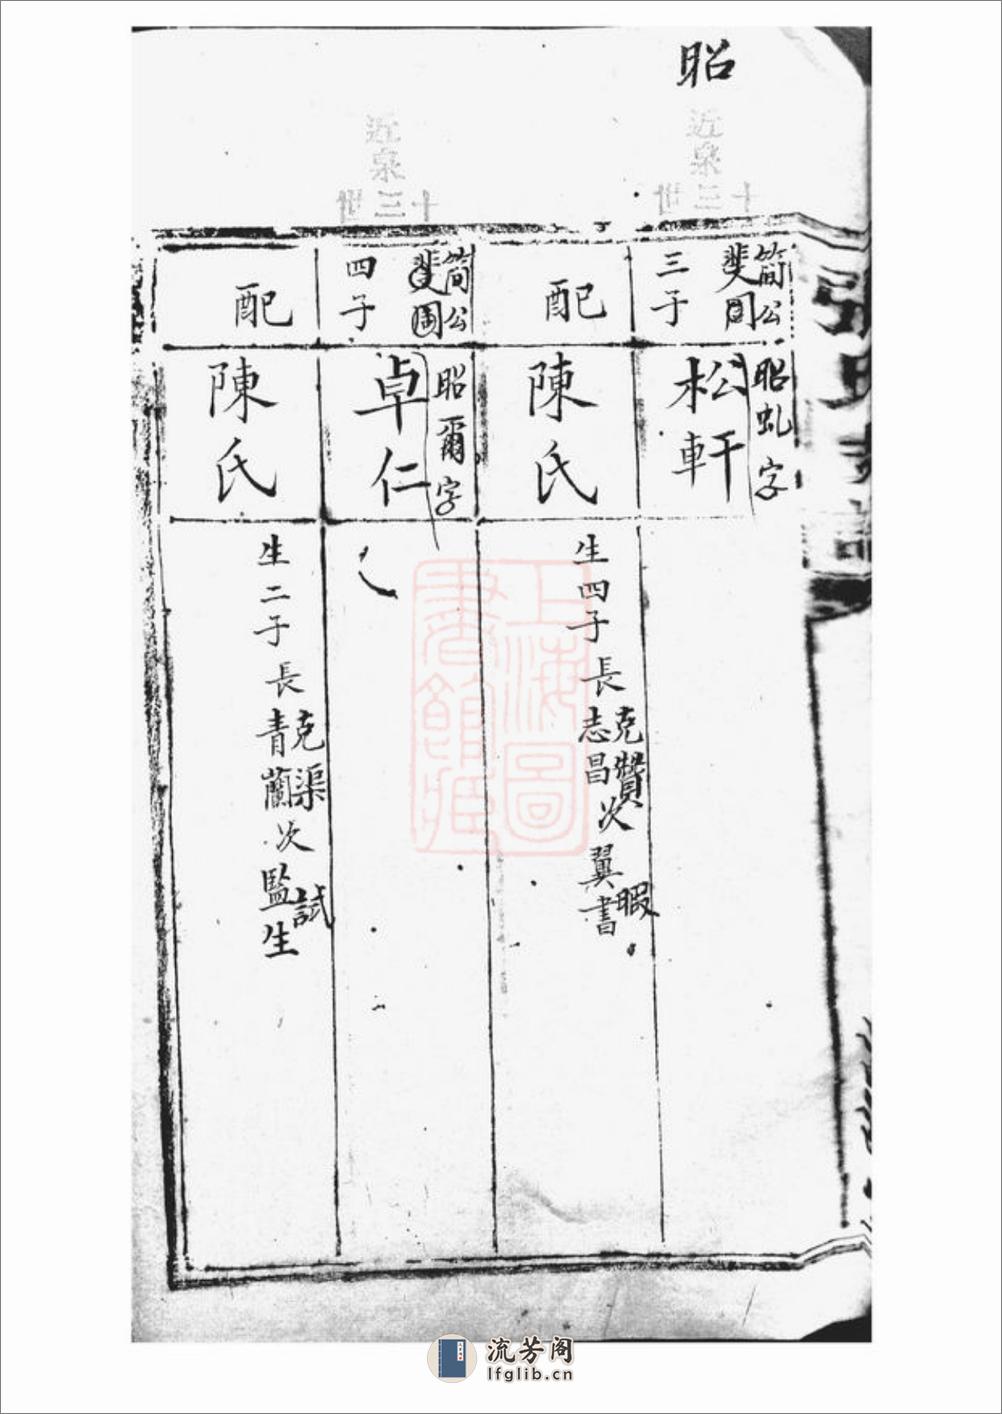 昭
近泉
十三世
簡公
斐園
三子
昭虬字
松軒
配
陳氏
生四子長
克贊
志昌
次
翼書
暇
近泉
十三世
簡公
斐園
四子
昭爾字
卓仁
配
陳氏
生二子長
克渠
青蘭
次
監生
試
上海圖書館藏
流芳阁
lfglib.cn